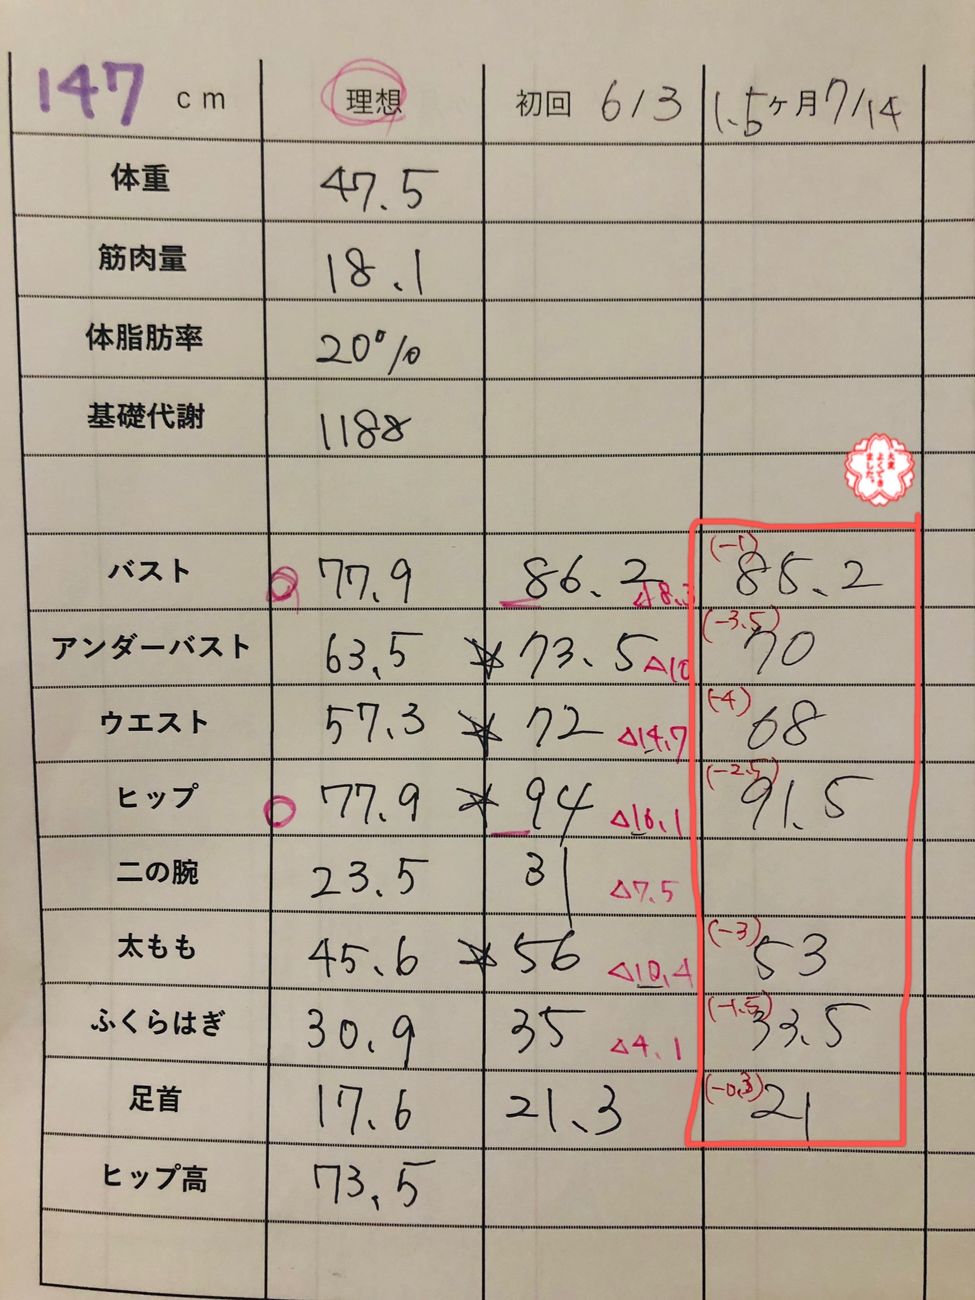 147 cm 理想 初回 6/3 1.5ヶ月 7/14
体重 47.5
筋肉量 18.1
体脂肪率 20%
基礎代謝 1188
大変
よくでき
ました。
バスト 77.9 86.2 △8.3 (-1) 85.2
アンダーバスト 63.5 73.5 △10 (-3.5) 70
ウエスト 57.3 72 △14.7 (-4) 68
ヒップ 77.9 94 △16.1 (-2.5) 91.5
二の腕 23.5 31 △7.5
太もも 45.6 56 △10.4 (-3) 53
ふくらはぎ 30.9 35 △4.1 (-1.5) 33.5
足首 17.6 21.3 (-0.3) 21
ヒップ高 73.5